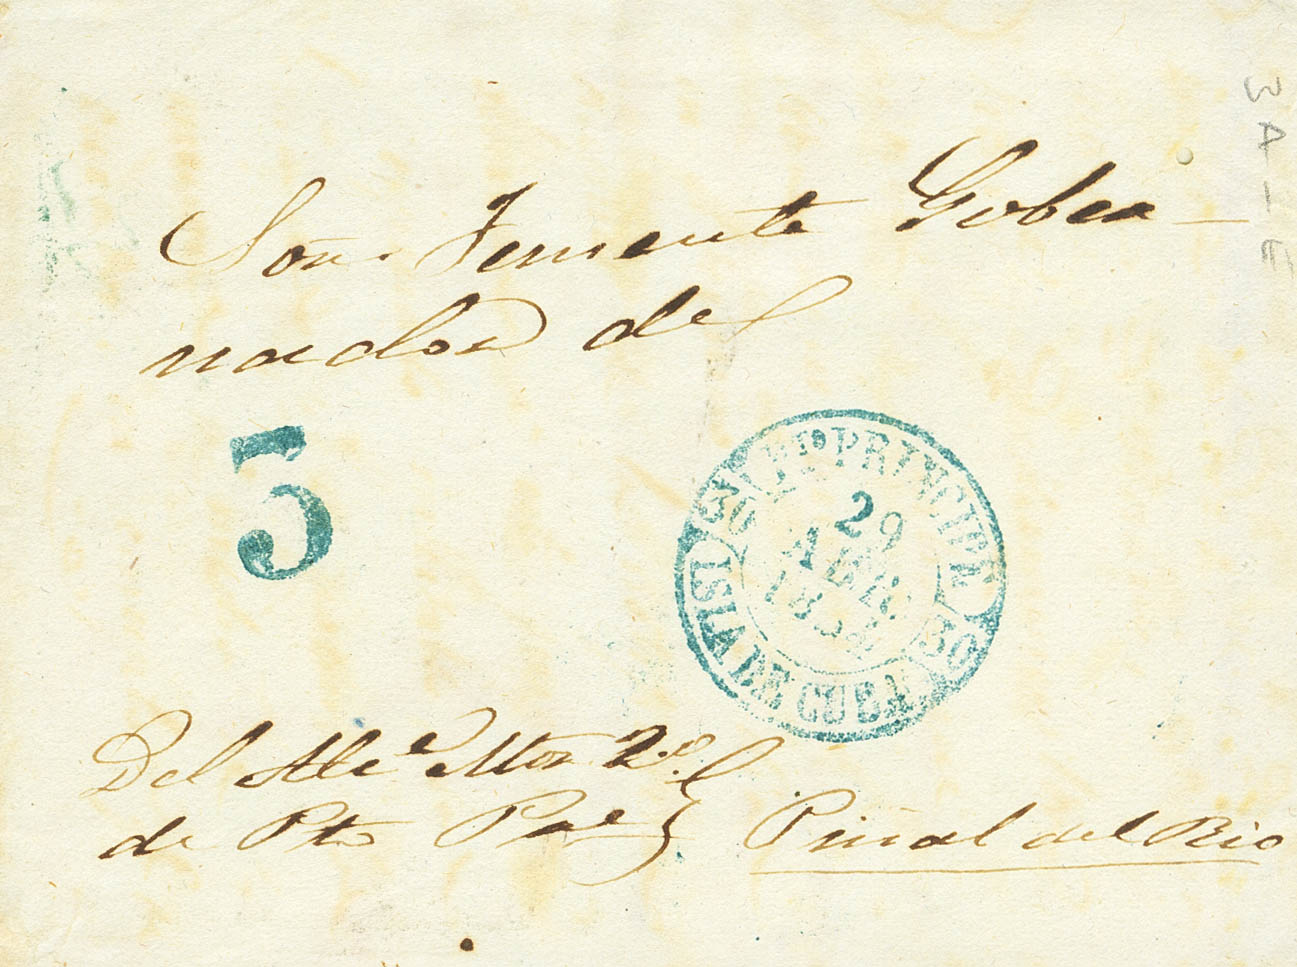 Señ. Teniente Gober-
nador del
5
Pto PRINCIPE
30 30
29
ABR
18
ISLA DE CUBA
Del Ale. Mor 2o.
de Pto Pae
Pinal del Rio
3 A - E